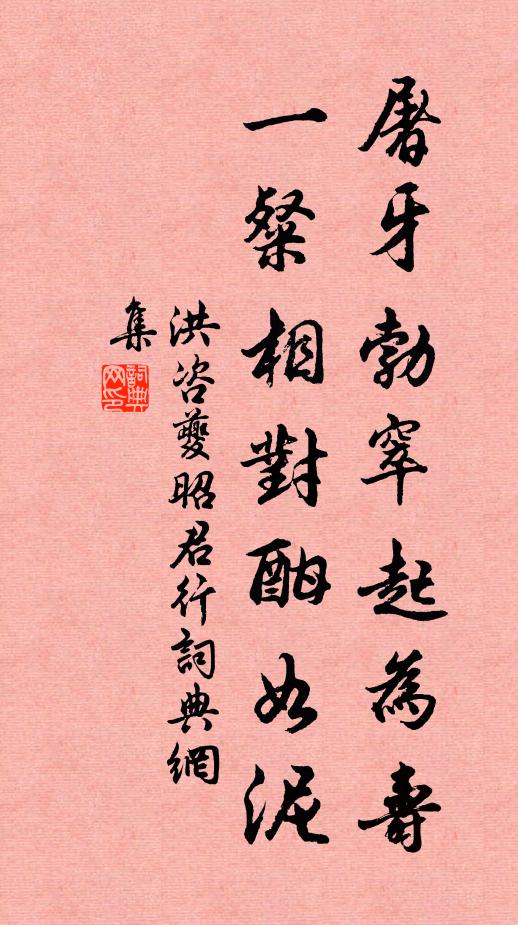 屠牙勃窣起為壽
一粲相對酣如泥
洪咨夔昭君行詞典網
集
詞典
网印